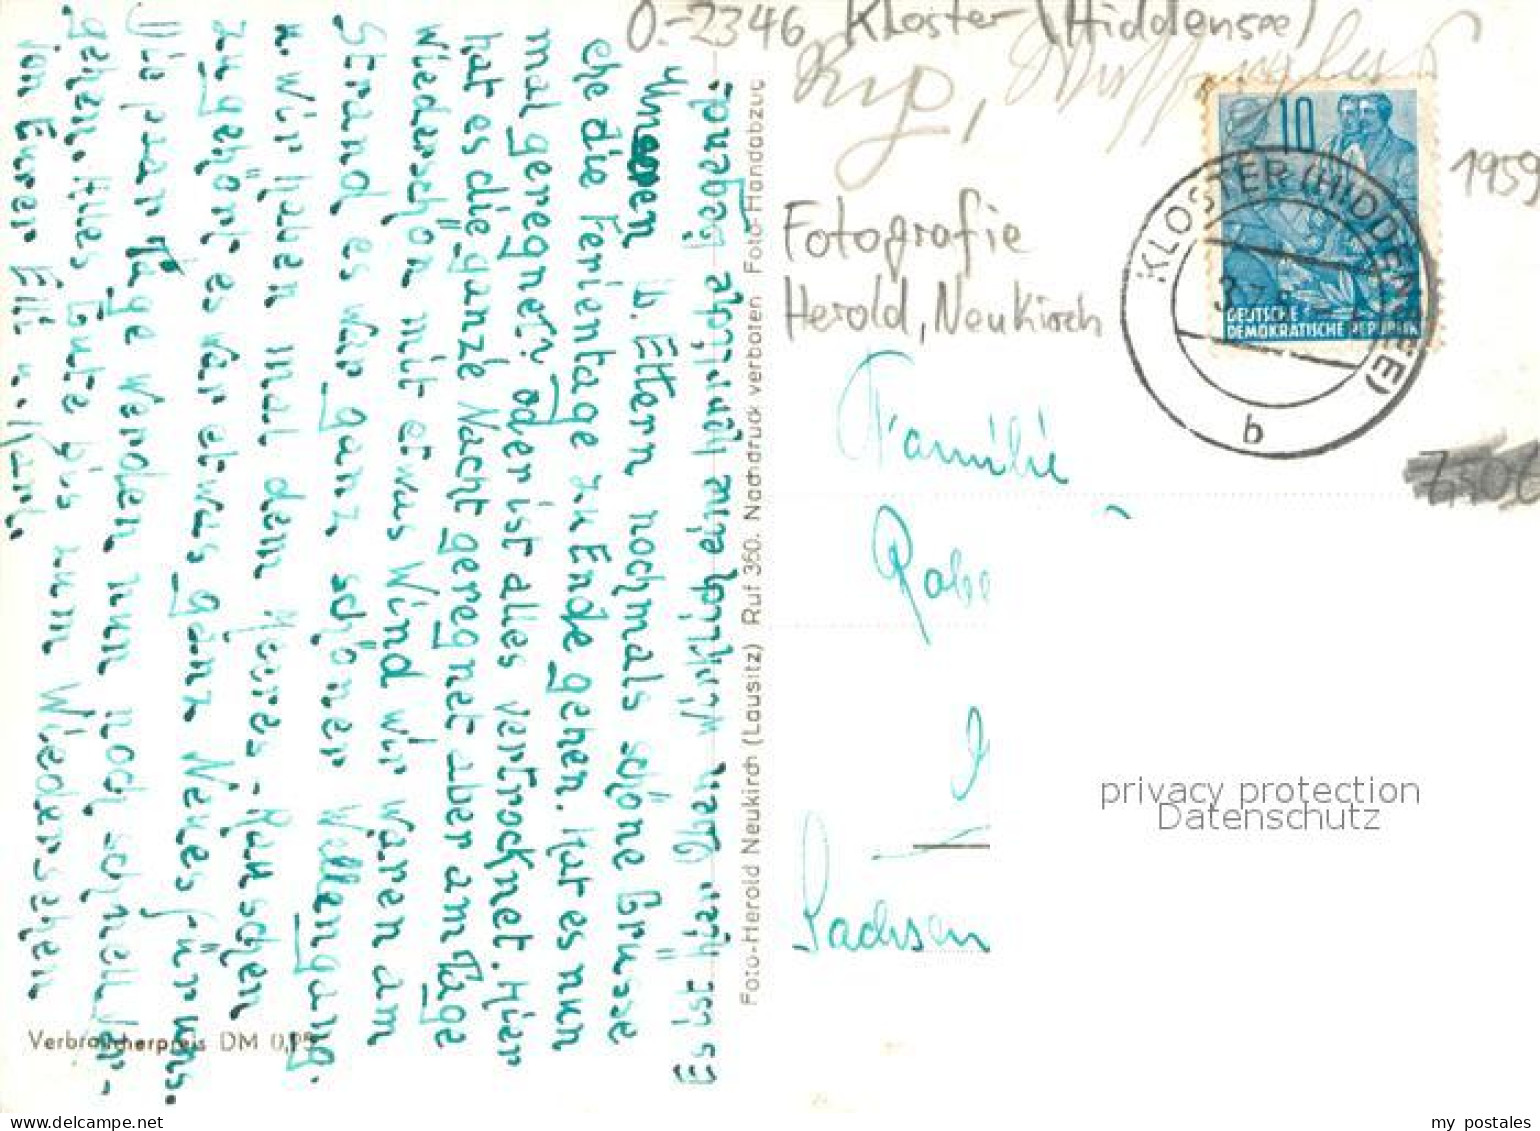 O.-2346 Kloster (Hiddensee)
1959
Fotografie
Herold, Neukirch
10
DEUTSCHE
DEMOKRATISCHE REPUBLIK
KLOSTER (HIDDENSEE)
3.7.
b
Familie
Sachsen
privacy protection
Datenschutz
u. Eltern nochmals schöne Grüsse
ehe die Ferientage zu Ende gehen. Hat es nun
mal geregnet? oder ist alles vertrocknet. Hier
hat es die ganze Nacht geregnet aber am Tage
wieder schön mit etwas Wind wir waren am
Strand es war ganz schöner Wellengang.
u. wir haben mal dem Meeres-Rauschen
zugehört es war etwas ganz Neues für uns.
Die paar Tage werden nun noch schnell ver-
gehen. Alles Gute bis zum Wiedersehen
von Euren Elli u. Kurt.
Es ist hier
Foto-Herold Neukirch (Lausitz) Ruf 360. Nachdruck verboten Foto-Handabzug
Verbraucherpreis DM 0,25
my postales